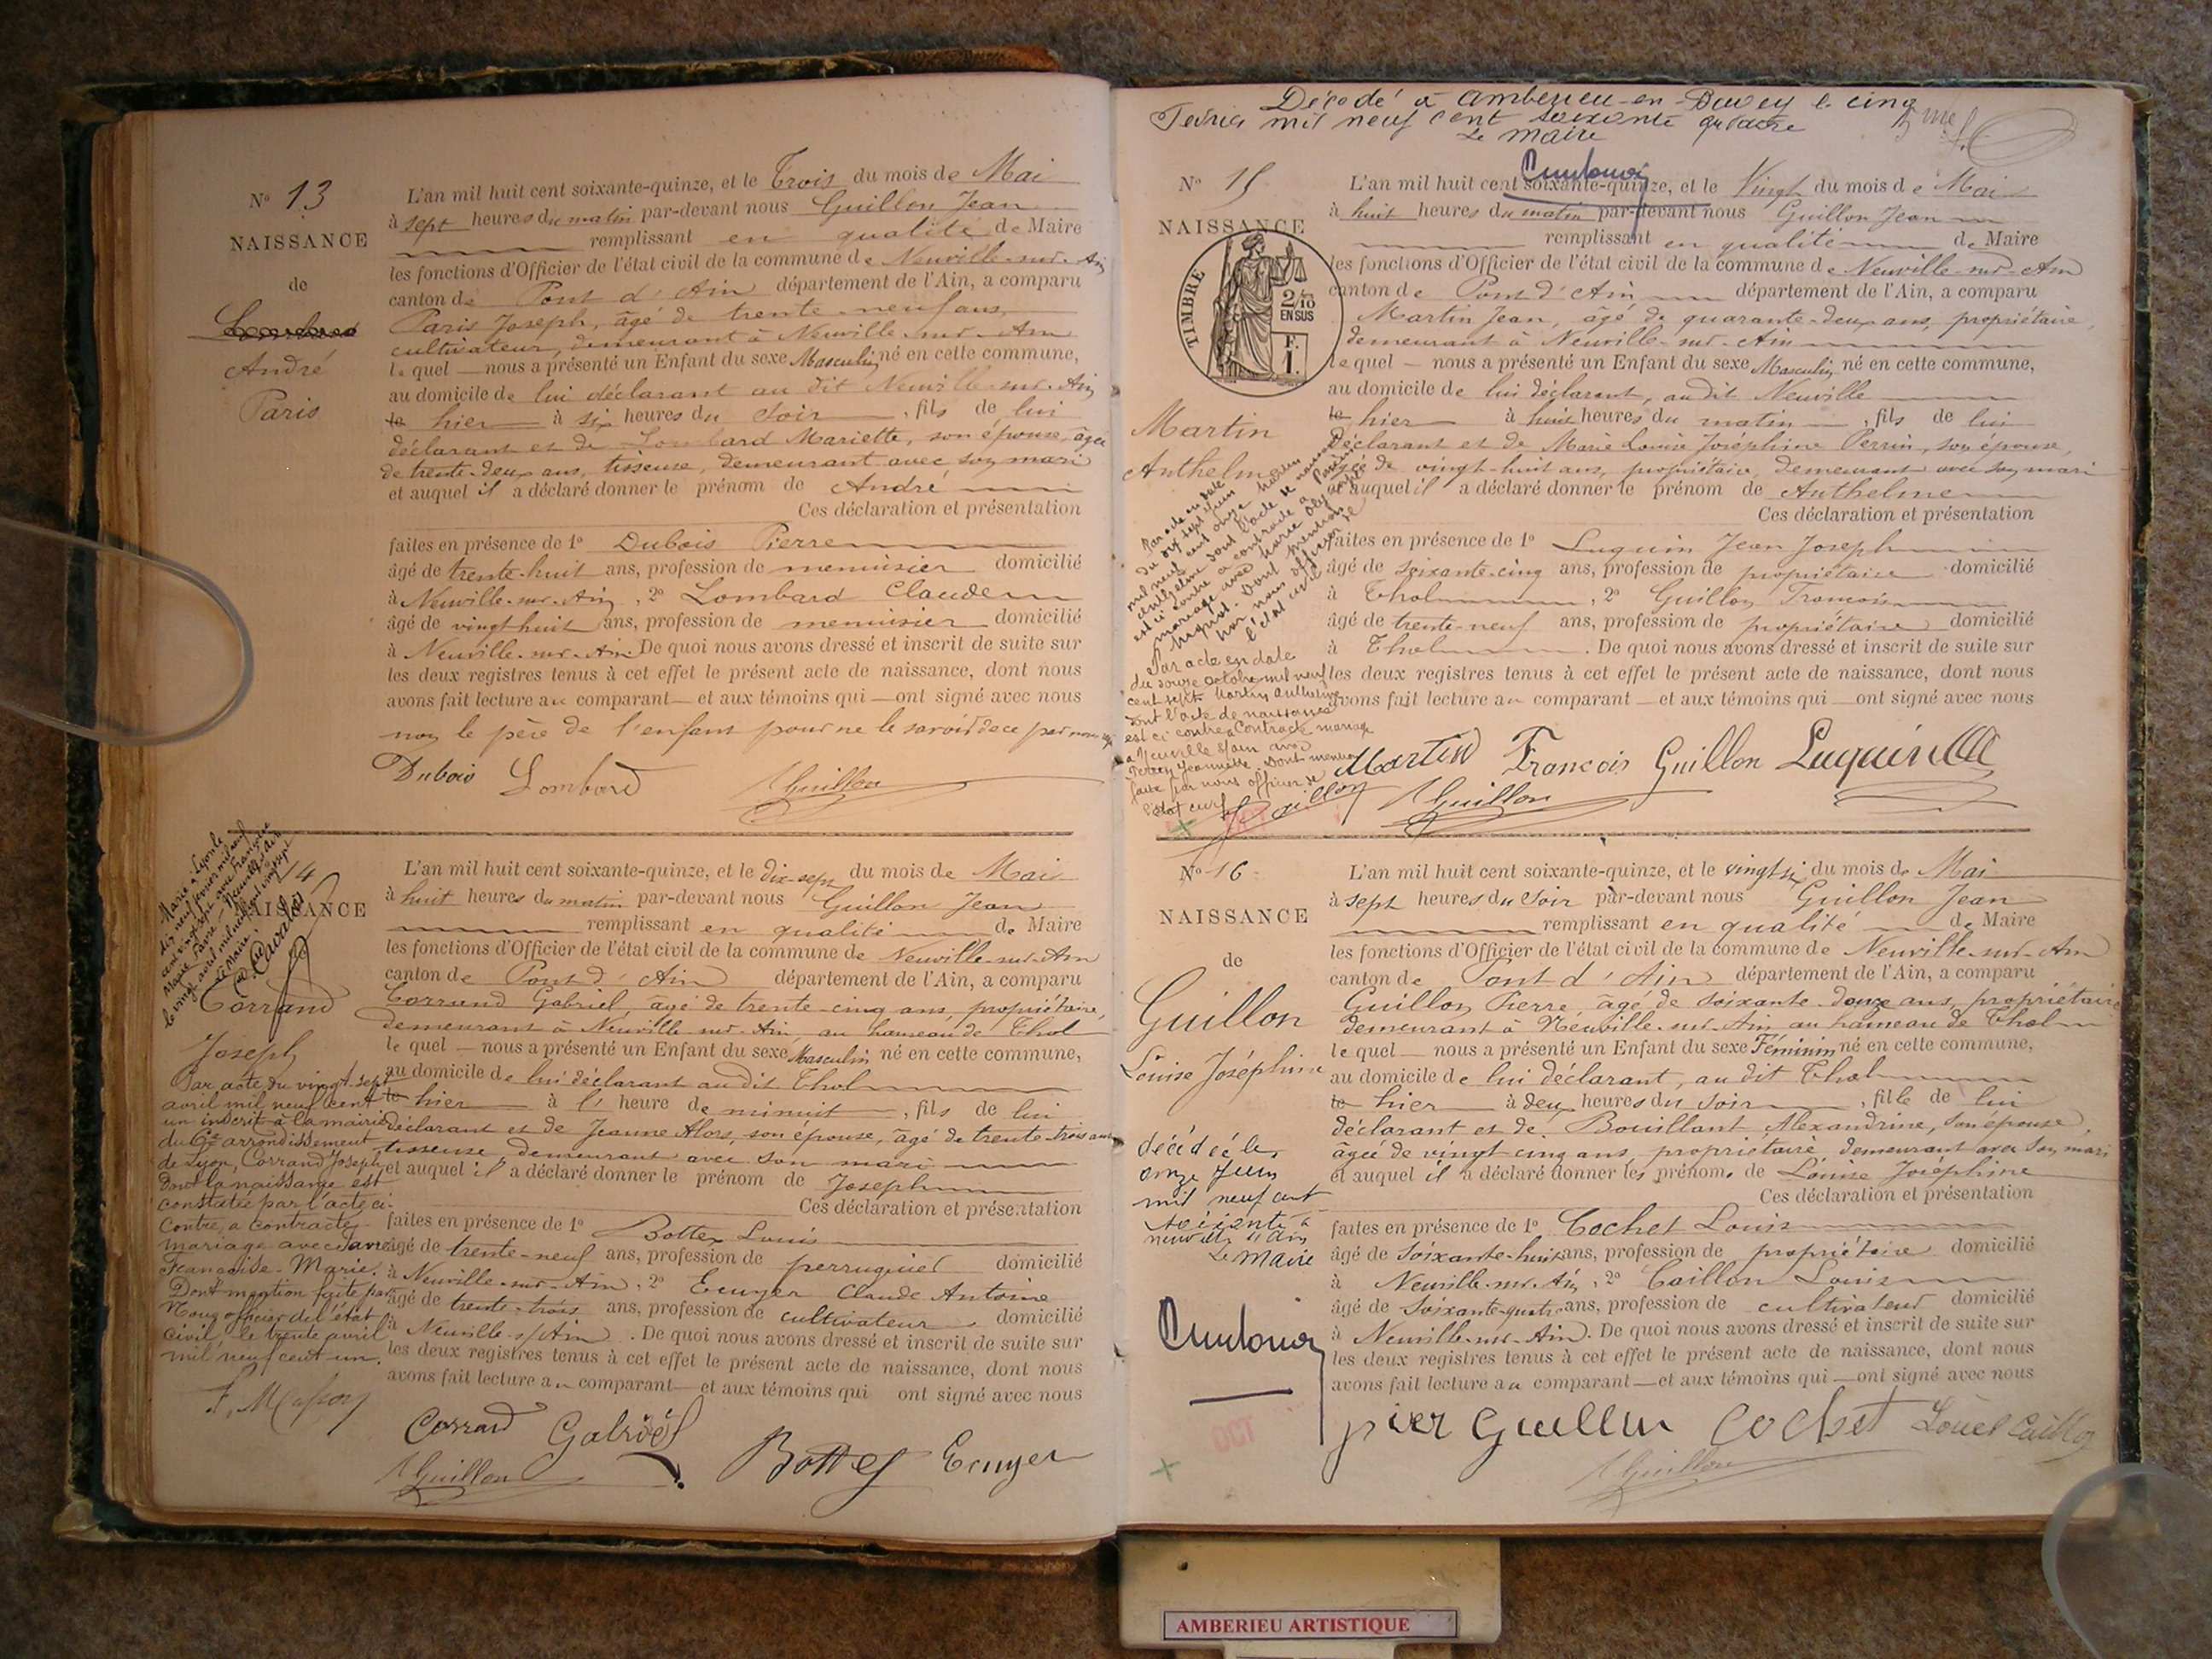 N° 13
NAISSANCE
de
André
Paris
L'an mil huit cent soixante-quinze, et le Trois du mois de Mai
à sept heures du matin par-devant nous Guillon Jean
remplissant en qualité de Maire
les fonctions d'Officier de l'état civil de la commune de Neuville-sur-Ain
canton de Pont d'Ain département de l'Ain, a comparu
Paris Joseph, âgé de trente-neuf ans,
cultivateur, demeurant à Neuville-sur-Ain
lequel nous a présenté un Enfant du sexe Masculin né en cette commune,
au domicile de lui déclarant au dit Neuville-sur-Ain
le hier à six heures du soir, fils de lui
déclarant et de Lombard Mariette, son épouse, âgée
de trente-deux ans, tisseuse, demeurant avec son mari
et auquel il a déclaré donner le prénom de André
Ces déclaration et présentation
faites en présence de 1° Dubois Pierre
âgé de trente-huit ans, profession de menuisier domicilié
à Neuville-sur-Ain, 2° Lombard Claude
âgé de vingt huit ans, profession de menuisier domicilié
à Neuville-sur-Ain De quoi nous avons dressé et inscrit de suite sur
les deux registres tenus à cet effet le présent acte de naissance, dont nous
avons fait lecture au comparant et aux témoins qui ont signé avec nous
non le père de l'enfant pour ne le savoir de ce par nous
Dubois Lombard Guillon
14
NAISSANCE
de
Corrand
Joseph
Marié à Lyon le
dix neuf février mil neuf
cent vingt sept avec Françoise
Marie Favre
le vingt avril mil neuf cent vingt sept
Le Maire
Par acte du vingt-sept
avril mil neuf cent
un inscrit à la mairie
du 6e arrondissement
de Lyon, Corrand Joseph
dont la naissance est
constatée par l'acte ci-
contre, a contracté
mariage avec Favre
Françoise-Marie.
Dont mention faite par
Nous officier de l'état
civil, le trente avril
mil neuf cent un.
L'an mil huit cent soixante-quinze, et le dix-sept du mois de Mai
à huit heures du matin par-devant nous Guillon Jean
remplissant en qualité de Maire
les fonctions d'Officier de l'état civil de la commune de Neuville-sur-Ain
canton de Pont d'Ain département de l'Ain, a comparu
Corrand Gabriel, âgé de trente-cinq ans, propriétaire,
demeurant à Neuville-sur-Ain, au hameau de Thol
lequel nous a présenté un Enfant du sexe Masculin né en cette commune,
au domicile de lui déclarant au dit Thol
le hier à l'heure de minuit, fils de lui
déclarant et de Jeanne Alors, son épouse, âgé de trente-trois ans
tisseuse, demeurant avec son mari
et auquel il a déclaré donner le prénom de Joseph
Ces déclaration et présentation
faites en présence de 1° Bottex Louis
âgé de trente-neuf ans, profession de perruquier domicilié
à Neuville-sur-Ain, 2° Ecuyer Claude Antoine
âgé de trente-trois ans, profession de cultivateur domicilié
à Neuville-s/Ain. De quoi nous avons dressé et inscrit de suite sur
les deux registres tenus à cet effet le présent acte de naissance, dont nous
avons fait lecture au comparant et aux témoins qui ont signé avec nous
Corrand Gabriel Bottex Ecuyer
Guillon
Décédé à Amberieu-en-Bugey le cinq
Fevrier mil neuf cent soixante quatre
Le Maire
N° 15
NAISSANCE
TIMBRE
2/10
EN SUS
F.
1.
Martin
Anthelme
Par acte en date
du dix sept juin
mil neuf cent onze Martin
Anthelme dont l'acte de naissance
est ci contre a contracté à
mariage avec Marie
Dont mention
par nous officier de
l'état civil
Par acte en date
du douze octobre mil neuf
cent sept Martin Anthelme
dont l'acte de naissance
est ci contre a contracté mariage
à Neuville s/Ain avec
Jeannette. Dont mention
faite par nous officier de
l'état civil
L'an mil huit cent soixante-quinze, et le Vingt du mois de Mai
à huit heures du matin par-devant nous Guillon Jean
remplissant en qualité de Maire
les fonctions d'Officier de l'état civil de la commune de Neuville-sur-Ain
canton de Pont d'Ain département de l'Ain, a comparu
Martin Jean, âgé de quarante-deux ans, propriétaire,
demeurant à Neuville-sur-Ain
lequel nous a présenté un Enfant du sexe Masculin né en cette commune,
au domicile de lui déclarant, au dit Neuville
le hier à huit heures du matin, fils de lui
déclarant et de Marie Louise Joséphine Perrin, son épouse,
âgée de vingt-huit ans, propriétaire, demeurant avec son mari
et auquel il a déclaré donner le prénom de Anthelme
Ces déclaration et présentation
faites en présence de 1° Luquin Jean Joseph
âgé de soixante-cinq ans, profession de propriétaire domicilié
à Thol, 2° Guillon François
âgé de trente-neuf ans, profession de propriétaire domicilié
à Thol. De quoi nous avons dressé et inscrit de suite sur
les deux registres tenus à cet effet le présent acte de naissance, dont nous
avons fait lecture au comparant et aux témoins qui ont signé avec nous
Martin François Guillon Luquin
Guillon
N° 16
NAISSANCE
de
Guillon
Louise Joséphine
décédée le
onze Juin
mil neuf cent
soixante à
Neuville s/Ain
Le Maire
L'an mil huit cent soixante-quinze, et le vingt six du mois de Mai
à sept heures du soir par-devant nous Guillon Jean
remplissant en qualité de Maire
les fonctions d'Officier de l'état civil de la commune de Neuville-sur-Ain
canton de Pont d'Ain département de l'Ain, a comparu
Guillon Pierre âgé de soixante-douze ans, propriétaire
demeurant à Neuville-sur-Ain au hameau de Thol
lequel nous a présenté un Enfant du sexe Féminin né en cette commune,
au domicile de lui déclarant, au dit Thol
le hier à deux heures du soir, fille de lui
déclarant et de Bouillant Alexandrine, son épouse,
âgée de vingt cinq ans, propriétaire, demeurant avec son mari
et auquel il a déclaré donner les prénoms de Louise Joséphine
Ces déclaration et présentation
faites en présence de 1° Cochet Louis
âgé de soixante-huit ans, profession de propriétaire domicilié
à Neuville-sur-Ain, 2° Caillon Louis
âgé de soixante-quatre ans, profession de cultivateur domicilié
à Neuville-sur-Ain. De quoi nous avons dressé et inscrit de suite sur
les deux registres tenus à cet effet le présent acte de naissance, dont nous
avons fait lecture au comparant et aux témoins qui ont signé avec nous
pier Guillon Cochet
Guillon
OCT
AMBERIEU ARTISTIQUE